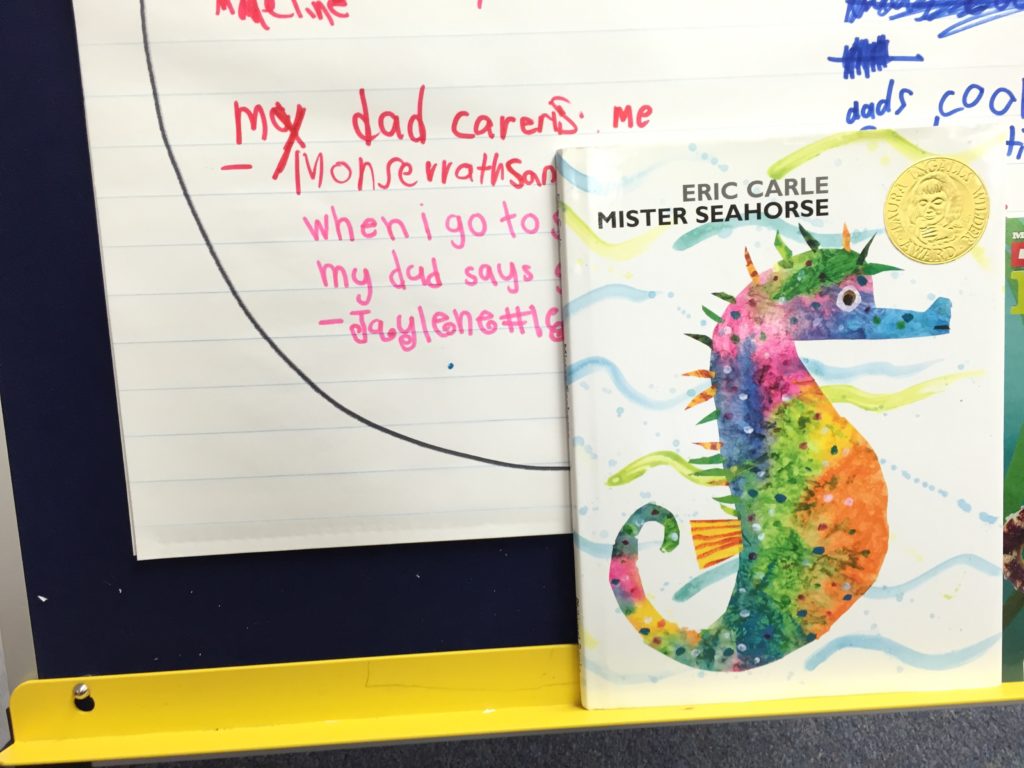 madeline
my dad carens me
- Monserrathsan
when i go to s
my dad says
- Jaylene#16
dads cool
ERIC CARLE
MISTER SEAHORSE
LAURA INGALLS WILDER AWARD